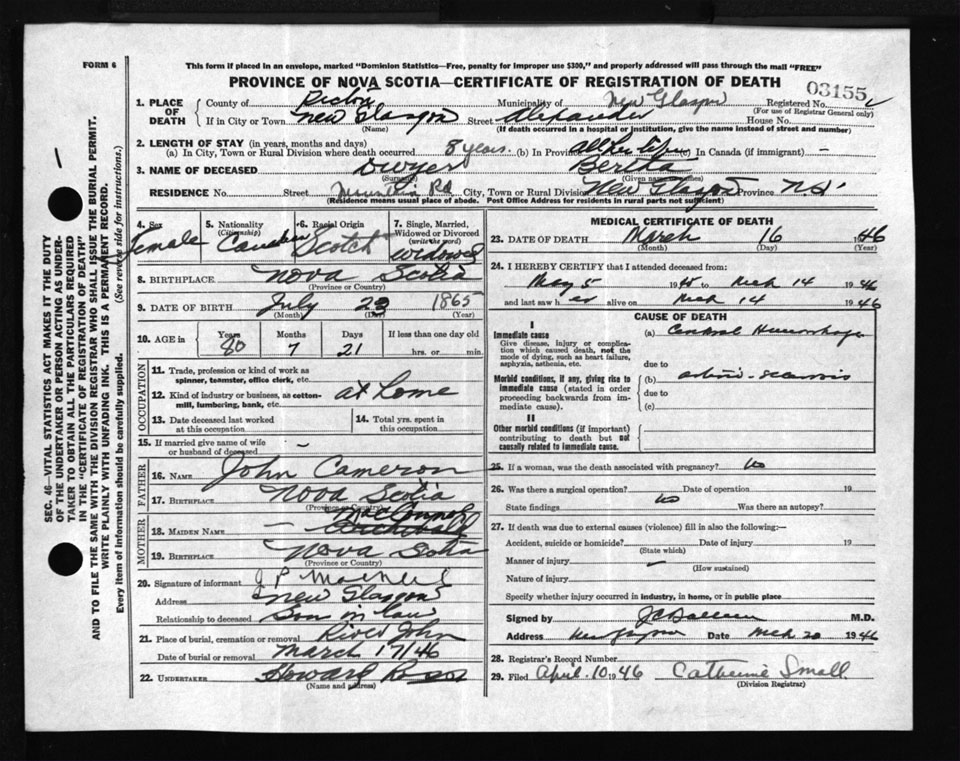 FORM 6
This form if placed in an envelope, marked "Dominion Statistics—Free, penalty for improper use $300," and properly addressed will pass through the mail "FREE"
PROVINCE OF NOVA SCOTIA—CERTIFICATE OF REGISTRATION OF DEATH
03155
1. PLACE OF DEATH
County of Pictou Municipality of New Glasgow Registered No.
(For use of Registrar General only)
If in City or Town New Glasgow Street Alexander House No.
(Name) (If death occurred in a hospital or institution, give the name instead of street and number)
2. LENGTH OF STAY (in years, months and days)
(a) In City, Town or Rural Division where death occurred 8 years. (b) In Province all her life (c) In Canada (if immigrant) —
3. NAME OF DECEASED Dwyer Bertha
(Surname) (Given names)
RESIDENCE No. Street Mountain Rd City, Town or Rural Division New Glasgow Province N.S.
(Residence means usual place of abode. Post Office Address for residents in rural parts not sufficient)
4. Sex Female
5. Nationality (Citizenship) Canadian
6. Racial Origin Scotch
7. Single, Married, Widowed or Divorced (write the word) Widowed
8. BIRTHPLACE Nova Scotia
(Province or Country)
9. DATE OF BIRTH July 23 1865
(Month) (Day) (Year)
10. AGE in Years 80 Months 7 Days 21 If less than one day old hrs. or min.
OCCUPATION
11. Trade, profession or kind of work as spinner, teamster, office clerk, etc.
12. Kind of industry or business, as cotton-mill, lumbering, bank, etc. at Home
13. Date deceased last worked at this occupation
14. Total yrs. spent in this occupation
15. If married give name of wife or husband of deceased —
FATHER
16. NAME John Cameron
17. BIRTHPLACE Nova Scotia
(Province or Country)
MOTHER
18. MAIDEN NAME — McConnel
19. BIRTHPLACE Nova Scotia
(Province or Country)
20. Signature of informant J P
Address New Glasgow
Relationship to deceased Son in law
21. Place of burial, cremation or removal River John
Date of burial or removal March 17/46
22. UNDERTAKER Howard Ross
(Name and address)
MEDICAL CERTIFICATE OF DEATH
23. DATE OF DEATH March 16 1946
(Month) (Day) (Year)
24. I HEREBY CERTIFY that I attended deceased from:
May 5 1945 to Mch 14 1946
and last saw her alive on Mch 14 1946
CAUSE OF DEATH
I
Immediate cause
Give disease, injury or complication which caused death, not the mode of dying, such as heart failure, asphyxia, asthenia, etc.
(a) Cerebral Hemorrhage
due to
Morbid conditions, if any, giving rise to immediate cause (stated in order proceeding backwards from immediate cause).
(b) arterio-sclerosis
due to
(c)
II
Other morbid conditions (if important) contributing to death but not causally related to immediate cause.
25. If a woman, was the death associated with pregnancy? No
26. Was there a surgical operation? No Date of operation 19
State findings Was there an autopsy?
27. If death was due to external causes (violence) fill in also the following:—
Accident, suicide or homicide? Date of injury 19
(State which)
Manner of injury
(How sustained)
Nature of injury
Specify whether injury occurred in industry, in home, or in public place
Signed by M.D.
Address New Glasgow Date Mch 20 1946
28. Registrar's Record Number
29. Filed April 10 1946 Catherine Small
(Division Registrar)
SEC. 46—VITAL STATISTICS ACT MAKES IT THE DUTY
OF THE UNDERTAKER OR PERSON ACTING AS UNDER-
TAKER TO OBTAIN ALL THE PARTICULARS REQUIRED
IN THE "CERTIFICATE OF REGISTRATION OF DEATH"
AND TO FILE THE SAME WITH THE DIVISION REGISTRAR WHO SHALL ISSUE THE BURIAL PERMIT.
WRITE PLAINLY WITH UNFADING INK. THIS IS A PERMANENT RECORD.
Every item of information should be carefully supplied. (See reverse side for instructions.)